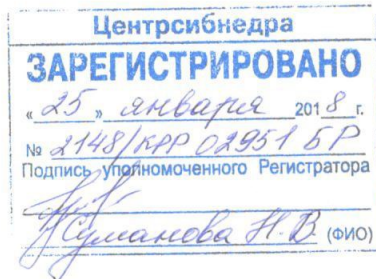 Центрсибнедра
ЗАРЕГИСТРИРОВАНО
« 25 » января 2018 г.
№ 2148/КРР 02951 БР
Подпись уполномоченного Регистратора
Н.В. (ФИО)